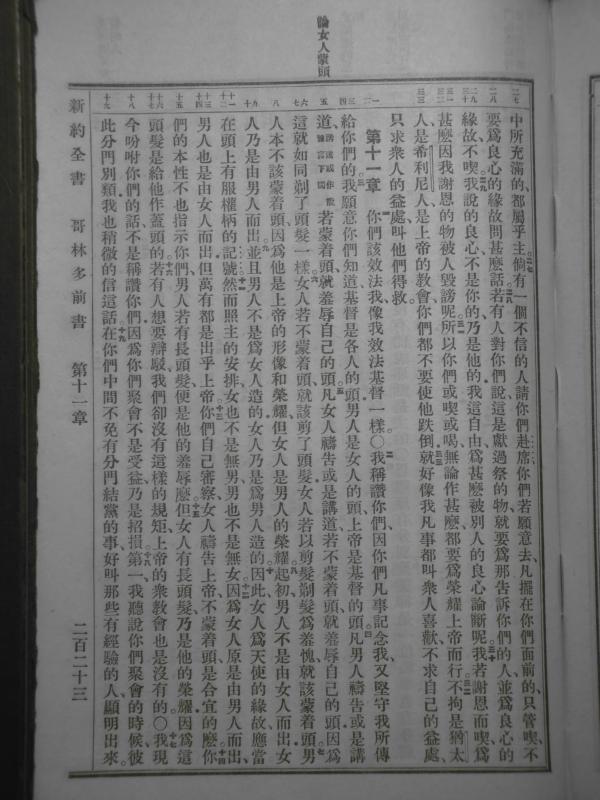 論女人蒙頭
中所充滿的、都屬乎主。倘有一個不信的人、請你們赴席、你們若願意去、凡擺在你們面前的、只管喫、不
要爲良心的緣故問甚麽話。若有人對你們說、這是獻過祭的物、就要爲那告訴你們的人、並爲良心的
緣故、不喫。我說的良心、不是你的、乃是他的。我這自由、爲甚麽被別人的良心論斷呢。我若謝恩而喫、爲
甚麽因我謝恩的物被人毀謗呢。所以你們或喫、或喝、無論作甚麽、都要爲榮耀上帝而行。不拘是猶太
人、是希利尼人、是上帝的教會、你們都不要使他跌倒、就好像我凡事都叫衆人喜歡、不求自己的益處、
只求衆人的益處、叫他們得救。
第十一章 你們該效法我、像我效法基督一樣。○我稱讚你們、因你們凡事記念我、又堅守我所傳
給你們的。我願意你們知道、基督是各人的頭、男人是女人的頭、上帝是基督的頭。凡男人禱告或是講
道、若蒙着頭、就羞辱自己的頭。凡女人禱告或是講道、若不蒙着頭、就羞辱自己的頭、因爲
這就如同剃了頭髮一樣。女人若不蒙着頭、就該剪了頭髮、女人若以剪髮剃髮爲羞愧、就該蒙着頭。男
人本不該蒙着頭、因爲他是上帝的形像和榮耀、但女人是男人的榮耀。起初男人不是由女人而出、女
人乃是由男人而出。並且男人不是爲女人造的、女人乃是爲男人造的。因此女人爲天使的緣故、應當
在頭上有服權柄的記號。然而照主的安排、女也不是無男、男也不是無女。因爲女人原是由男人而出、
男人也是由女人而出、但萬有都是出乎上帝。你們自己審察、女人禱告上帝、不蒙着頭、是合宜的麽。你
們的本性不也指示你們、男人若有長頭髮、便是他的羞辱麽。但女人有長頭髮、乃是他的榮耀、因爲這
頭髮是給他作蓋頭的。若有人想要辯駁、我們卻沒有這樣的規矩、上帝的衆教會也是沒有的。○我現
今吩咐你們的話、不是稱讚你們、因爲你們聚會不是受益、乃是招損。第一、我聽說你們聚會的時候、彼
此分門別類、我也稍微的信這話。在你們中間不免有分門結黨的事、好叫那些有經驗的人、顯明出來。
新約全書 哥林多前書 第十一章 二百二十三